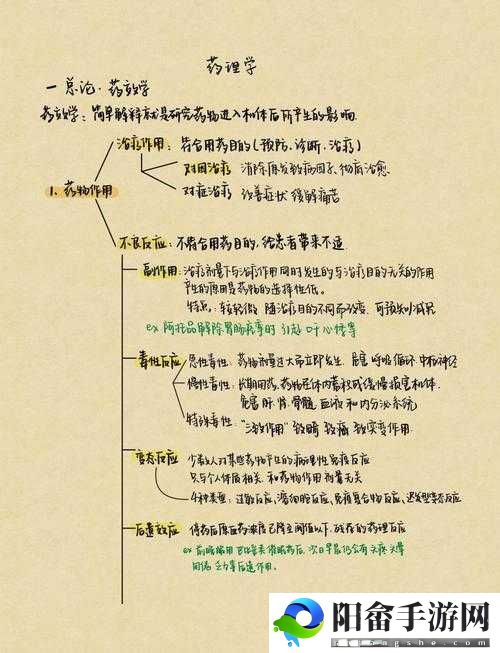 药理学
一 总论·药效学
药效学：简单解释就是研究药物进入机体后所产生的影响
治疗作用：符合用药目的(预防、诊断、治疗)
对因治疗 消除原发致病因子、彻底治愈
1、药物作用
对症治疗 改善症状 缓解痛苦
不良反应：不符合用药目的，给患者带来不适
副作用：治疗剂量下与治疗作用同时发生的与治疗目的无关的作用
产生的原因是药物的选择性低。
特点：较轻微 随治疗目的不同而改变，可预知减轻
ex 阿托品解除胃肠痉挛时 引起 口干 心悸等
毒性反应 急性毒性：药物剂量过大而立即发生，危害呼吸循环 中枢神经
慢性毒性：长期用药，药物在体内蓄积或缓慢损害机体，
危害 肝、肾、骨髓 血液 和内分泌系统
特殊毒性：“三致作用” 致畸 致癌 致突变作用
变态反应 少数人对某些药物产生的病理性免疫反应
只与个人体质相关，和药物作用 剂量无关
4种类型：过敏反应，溶细胞反应，免疫复合物反应，迟发型变态反应
后遗效应 停药后原血药浓度已降至阈值以下，残存的药理反应
ex 前晚服用 巴比妥类催眠药后，次日早晨仍会有 头疼 头晕
困倦 乏力等后遗作用。
阳畲手游网